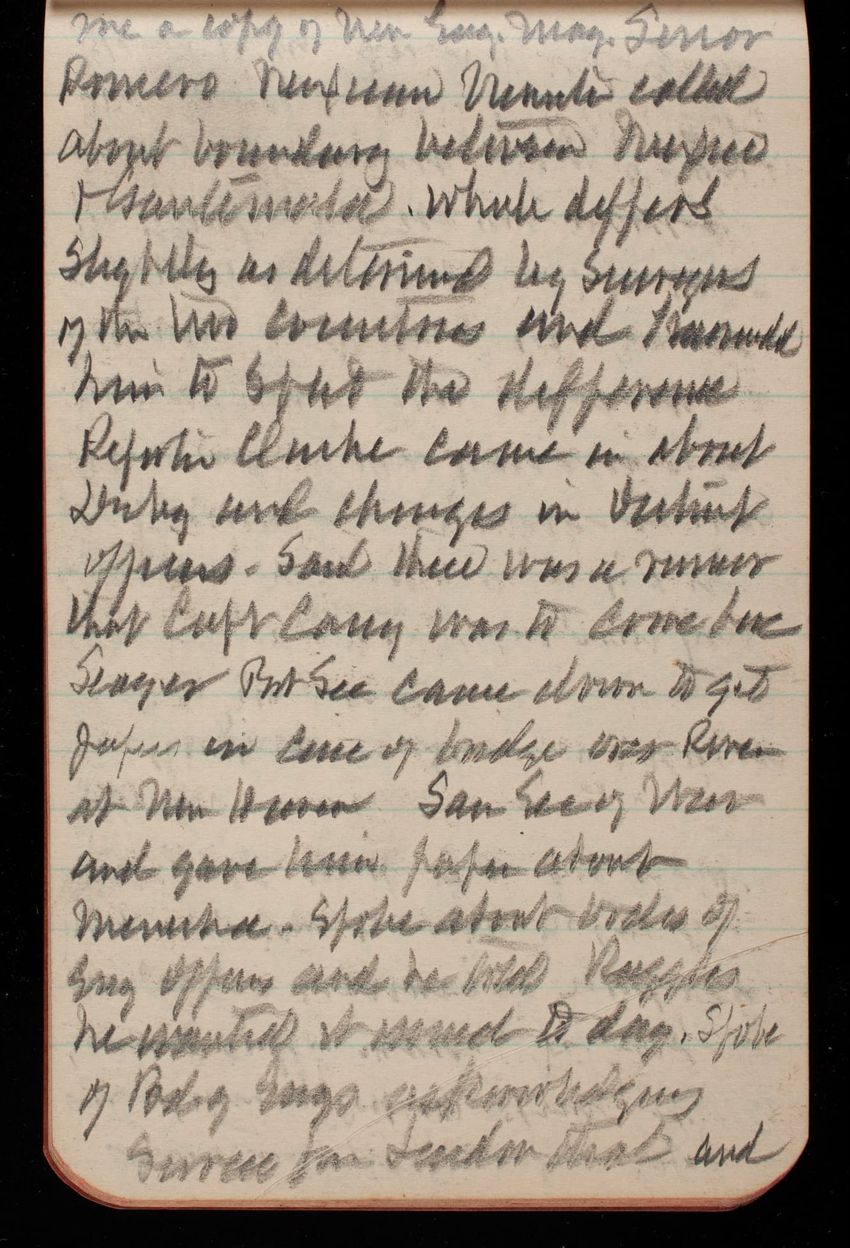 me a copy of New Eng. Mag. Senor
Romero Mexican called
about boundary between Mexico
& Guatemala. Whole differs
slightly as determined by Surveys
of the two countries and
him to split the difference
Clarke came in about
and changes in District
officers. Said there was a rumor
that Capt Casey was to come here
Seager Pvt Sec came down to get
papers in case of bridge over River
at New Haven Saw Sec of War
and gave him paper about
Menecha. Spoke about orders of
Eng Officers and he told Ruggles
he wanted it issued to day. Spoke
of Bd of Engs
Service for and